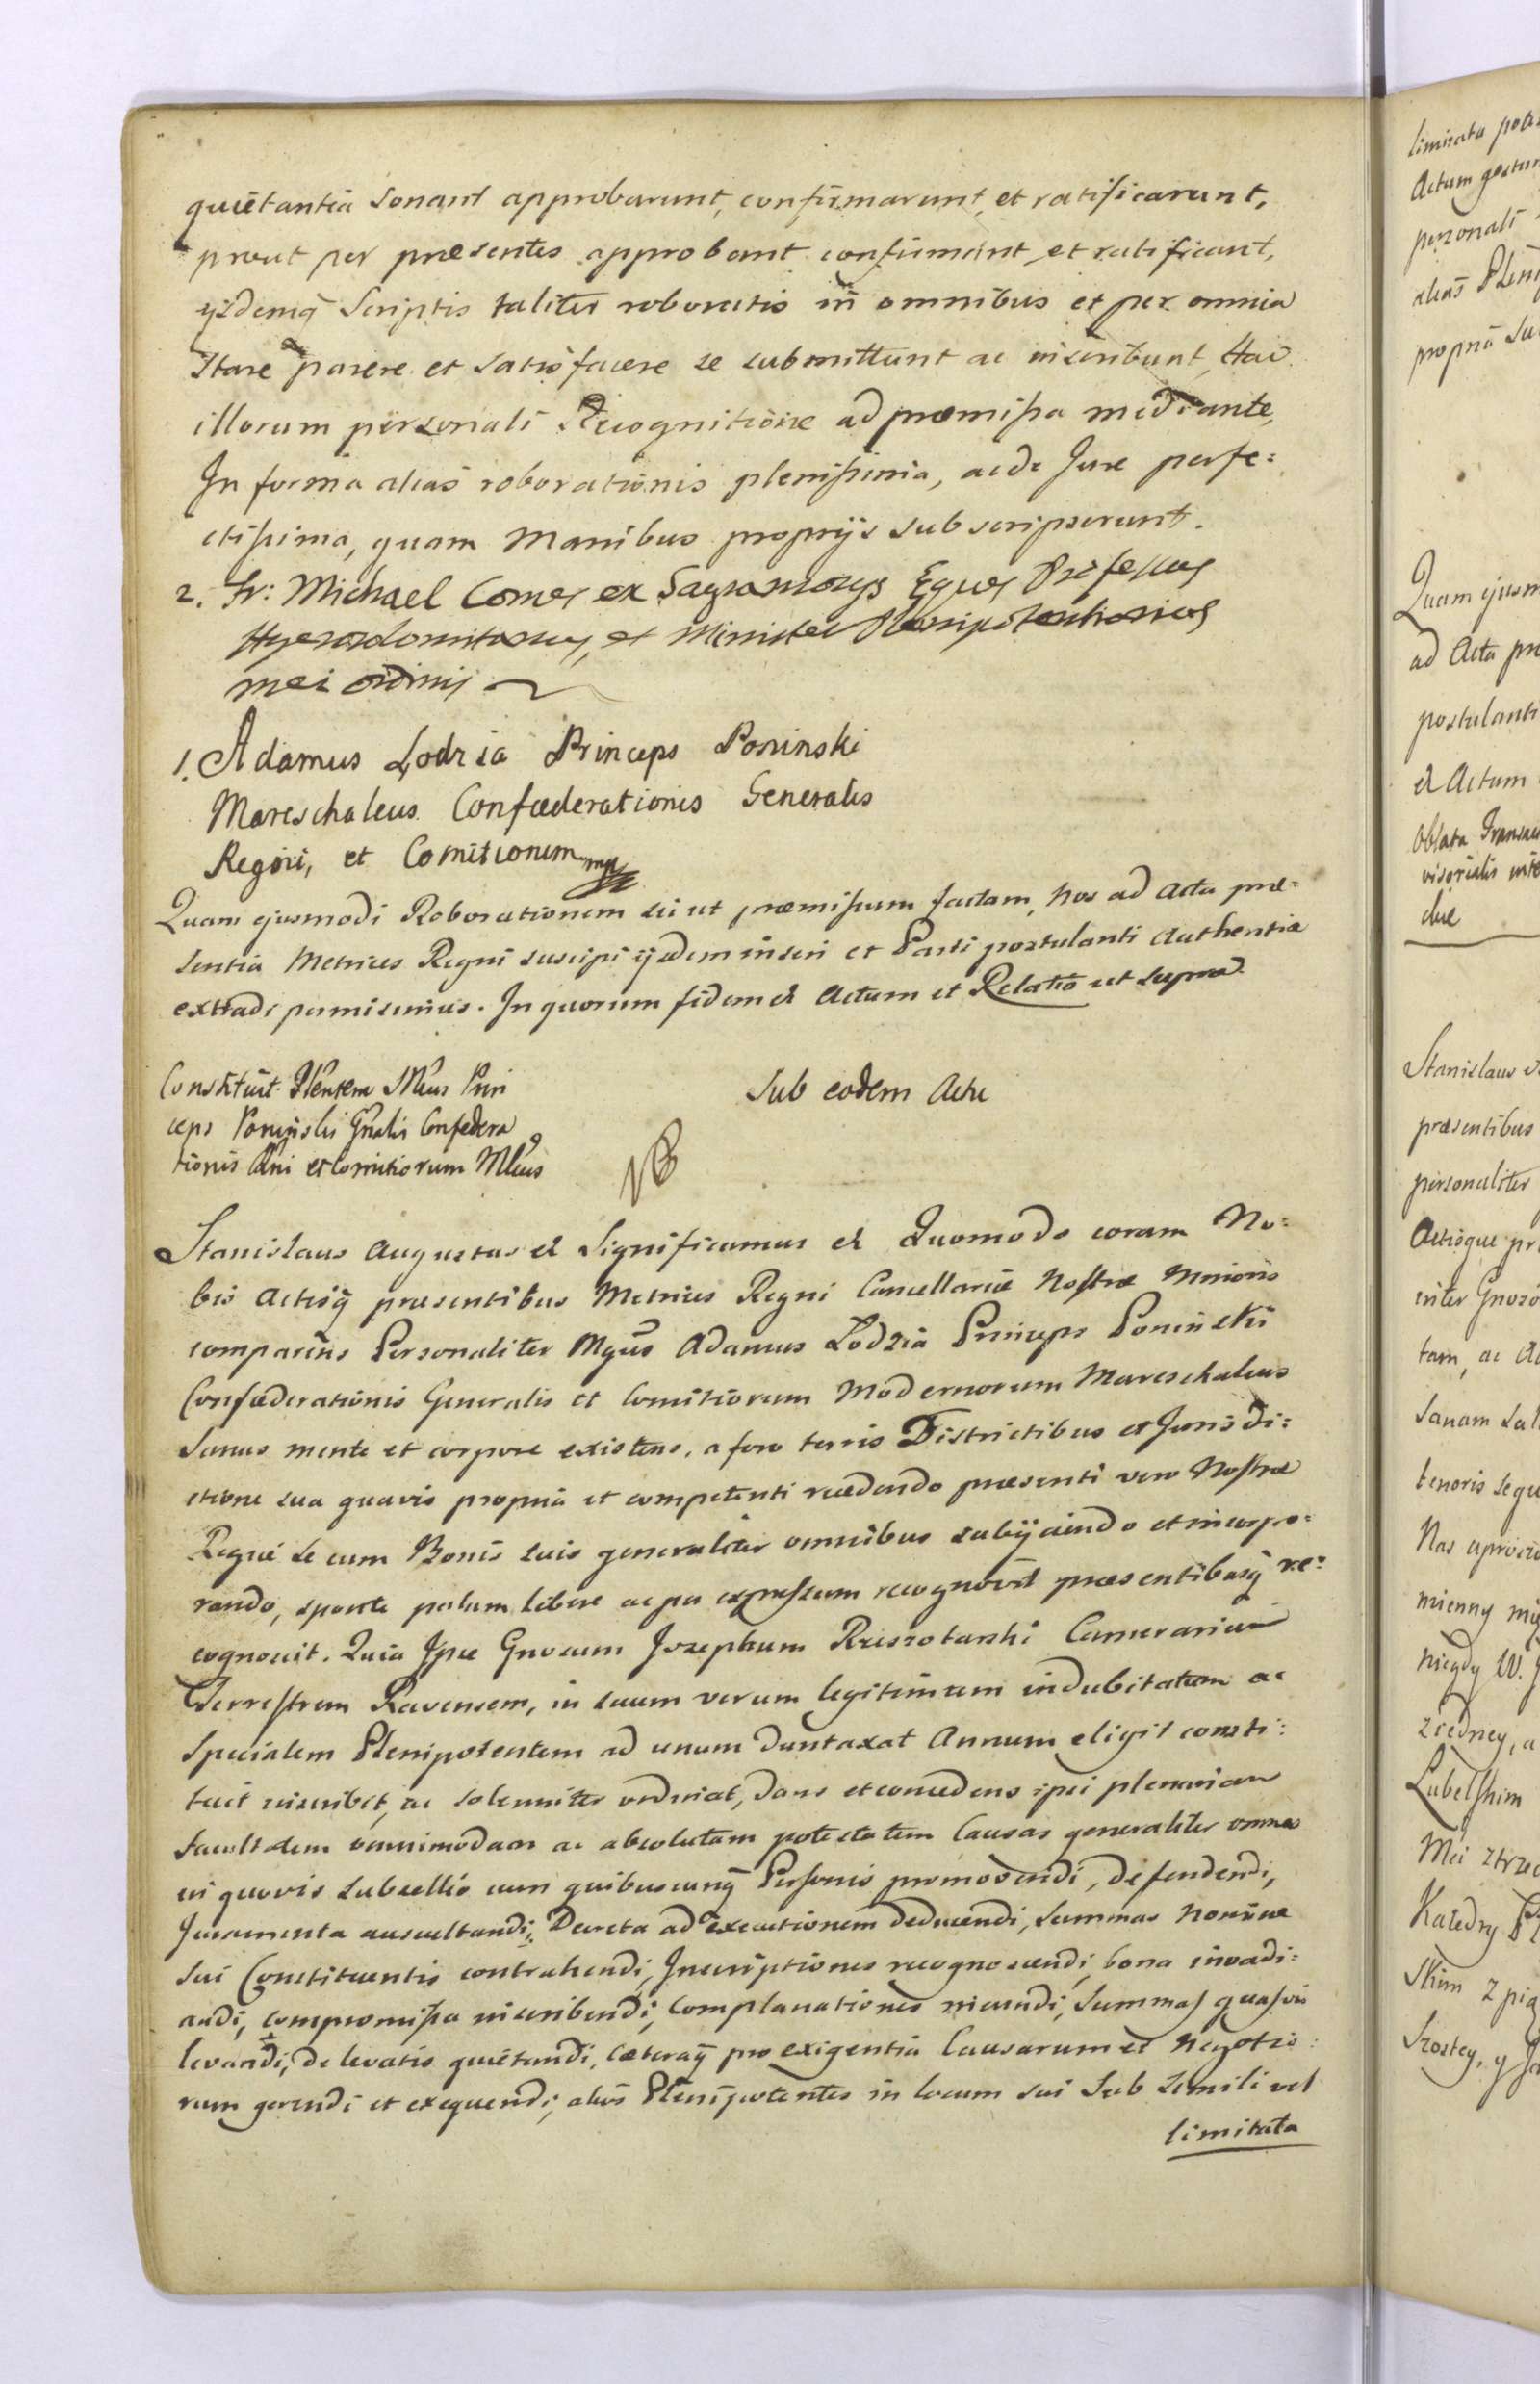 quietantia sonant approbarunt, confirmarunt, et ratificarunt,
prout per præsentes approbant confirmant, et ratificant,
ijsdemq̃ Scriptis taliter roboratis in omnibus et per omnia
stare parere et satisfacere se submittunt ac inscribunt, Hac
illorum personali Recognitione ad præmissa mediante,
In forma alias roborationis plenissima, ac de Jure perfe=
ctissima, quam Manibus proprijs subscripserunt.
2. Fr: Michael Comes ex Sagramosys Eques Professus
Hyerosolomitanus, et Minister Plenipotentiarius
mei ordinis
1. Adamus Lodzia Princeps Poninski
Mareschalcus Confæderationis Generalis
Regni, et Comitiorum mp
Quam ejusmodi Roborationem sic ut præmissum factam, Nos ad Acta præ=
sentia Metrices Regni suscipi ijsdem inseri et Parti postulanti Authentice
extradi permisimus. In quorum fidem et Actum et Relatio ut supra
Constituit Plentem Mcus Prin
ceps Poninski Gnalis Confedera
tionis Rni et Comitiorum Mlcus
Sub eodem Actu
NB
Stanislaus Augustus et Significamus et Quomodo coram No=
bis Actisq̃ præsentibus Metrices Regni Cancellariæ Nostræ Minoris
comparens Personaliter Mgcus Adamus Lodzia Princeps Poninski
Confæderationis Generalis et Comitiorum Modernorum Mareschalcus
Sanus mente et corpore existens, a foro terris Districtibus et Jurisdi=
ctione sua quavis propria et competenti recedendo præsenti vero Nostræ
Regiæ se cum Bonis suis generaliter omnibus subijciendo et incorpo=
rando, sponte palam libere ac per expressum recognovit præsentibusq̃ re=
cognovit. Quia Ipse Gnosum Josephum Krissotarski Camerarium
Terrestrem Ravensem, in suum verum legitimum indubitatum ac
Specialem Plenipotentem ad unum duntaxat Annum eligit consti=
tuit inscribit, ac solenniter ordinat, dans et concedens ipsi plenariam
facultatem omnimodam ac absolutam potestatem Causas generaliter omnes
in quovis subsellio cum quibuscunq̃ Personis promovendi, defendendi,
Juramenta auscultandi, Decreta ad executionem deducendi, Summas Nomine
sui Constituentis contrahendi, Inscriptiones recognoscendi, bona invadi=
andi, compromissa inscribendi, Complanationes ineundi, Summas quasvis
levandi, de levatis quietandi, cæteraq̃ pro exigentia Causarum et Negotio=
rum gerendi et exequendi, alios Plenipotentes in locum sui Sub simili vel
limitata
limitata
Actum
personali
alias
propria
Quam
ad Acta
postulanti
et Actum
Oblata
due
Stanislaus
præsentibus
personaliter
Actisque
inter
tam, ac
Sanam
tenoris
Nas
mienny
niegdy W.
Lubelskim
Mci
Katedry
skim z